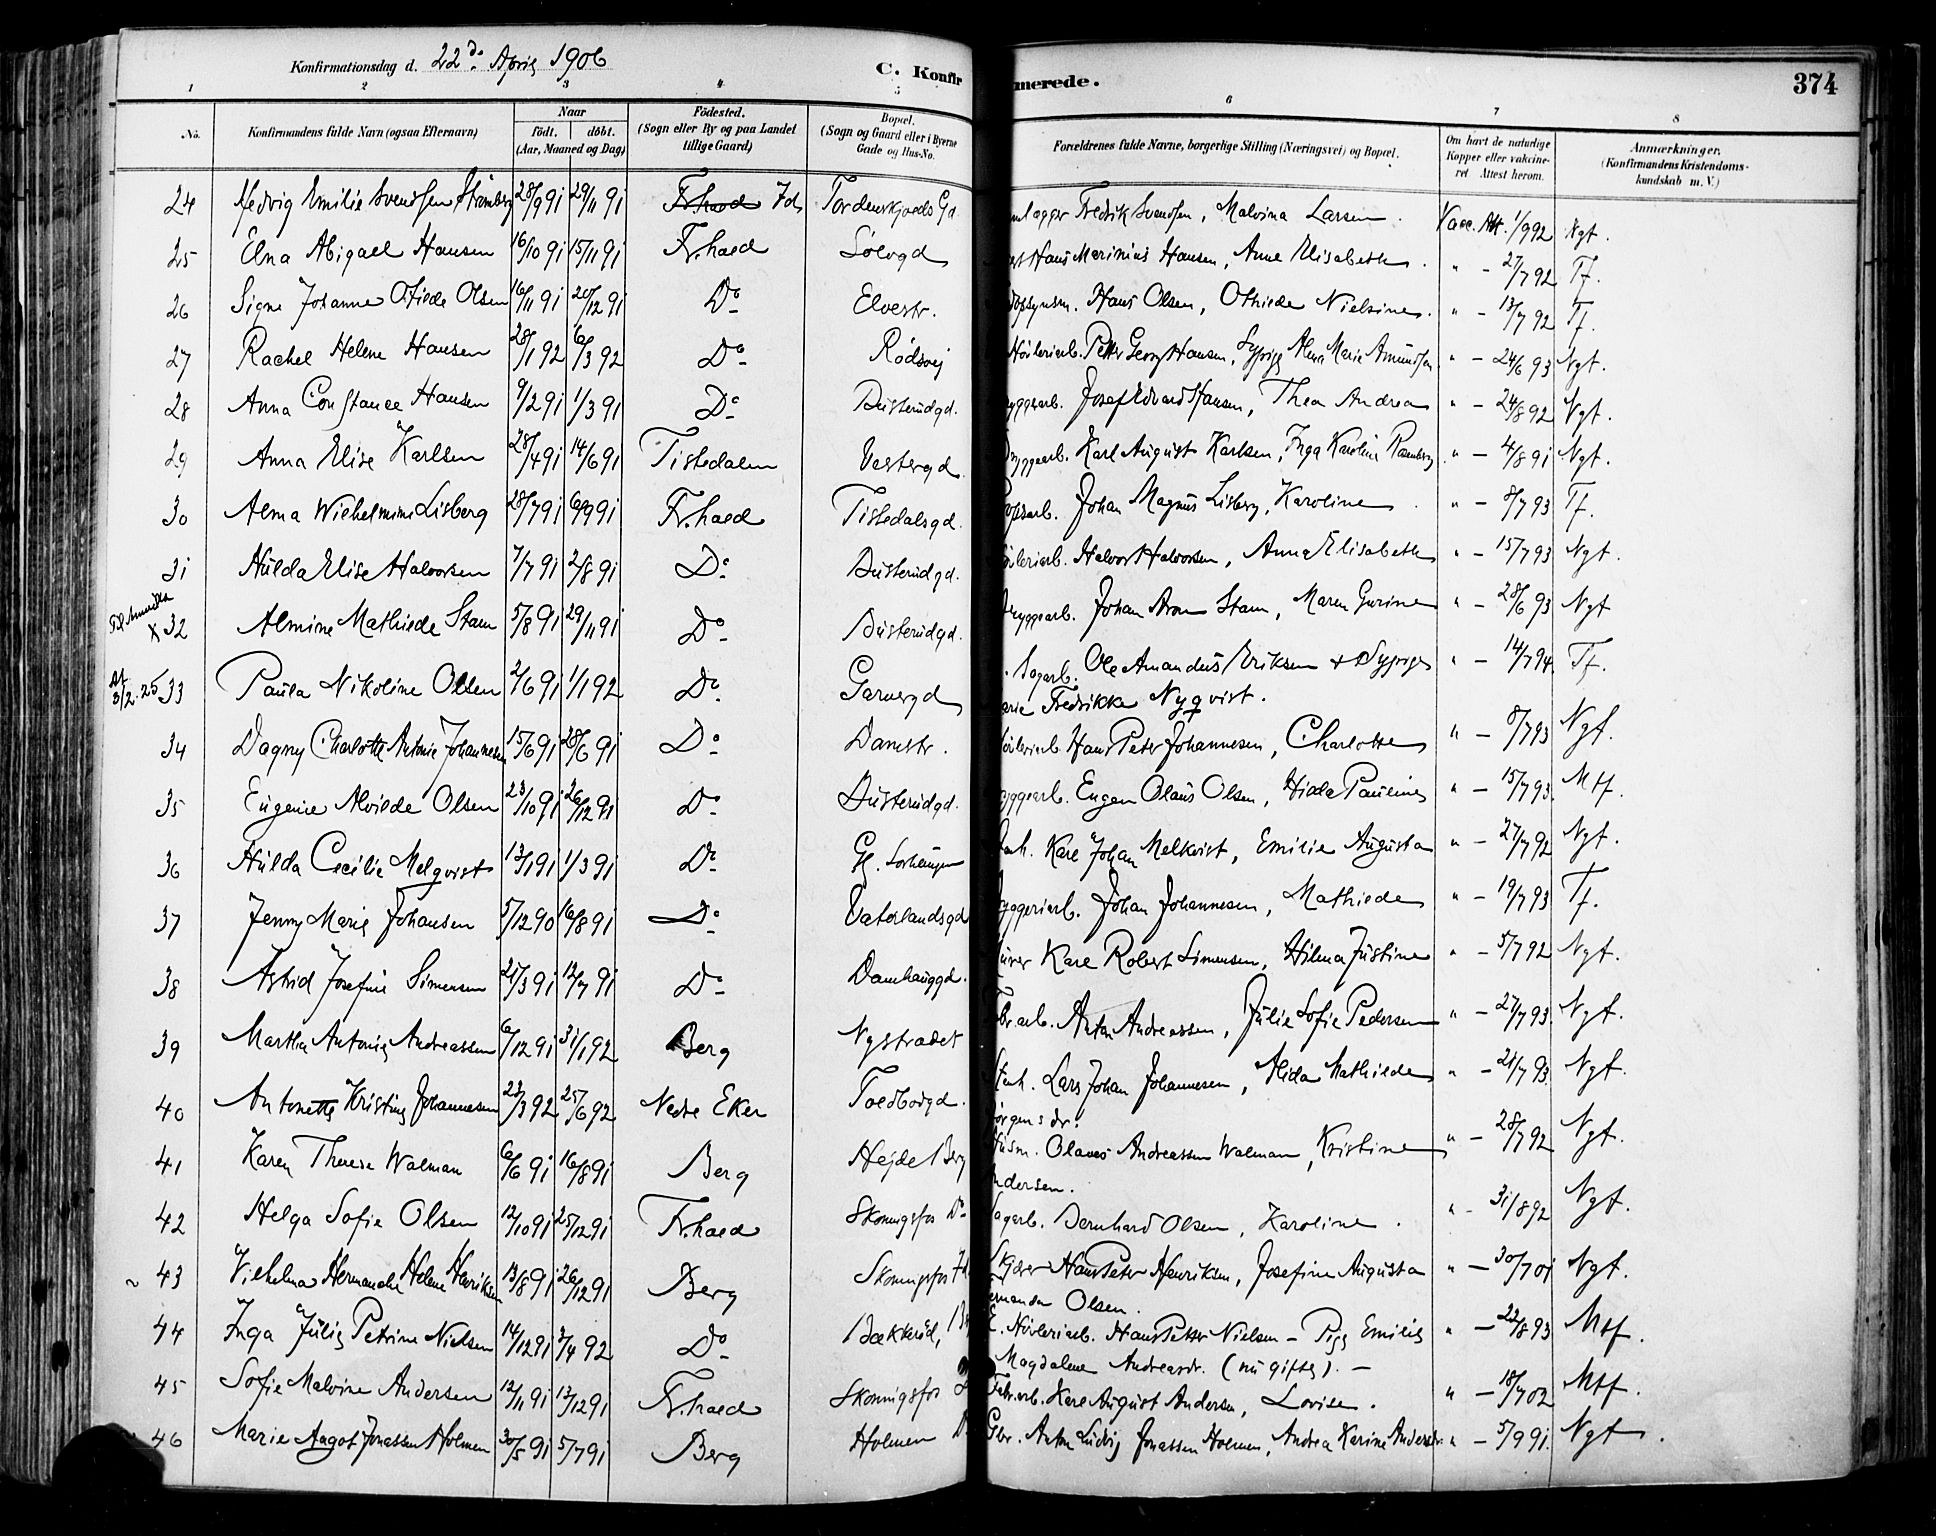 Konfirmationsdag d. 22d. April 1906
C. Konfirmerede.
374
1 2 3 4 5 6 7 8
No. Konfirmandens fulde Navn (ogsaa Efternavn) Naar födt. döbt. (Aar, Maaned og Dag) Födested. (Sogn eller By og paa Landet tillige Gaard) Bopæl. (Sogn og Gaard eller i Byerne Gade og Hus-No. Forældrenes fulde Navne, borgerlige Stilling (Næringsvei) og Bopæl. Om havt de naturlige Kopper eller vakcineret Attest herom. Anmærkninger. (Konfirmandens Kristendomskundskab m. V.)
24 Hedvig Emilie Svendsen 28/9 91 29/11 91 Fr.hald Ids Tordenskjolds Gd Fredrik Svendsen, Malvina Larsen. Vacc. Att. 1/9 92 Ngt.
25 Elna Abigael Hansen 16/10 91 15/11 91 Fr.hald Sölvgd Hans Marinius Hansen, Anne Elisabeth. " - 27/7 92 Tf.
26 Signe Johanne Otilde Olsen 16/11 91 20/12 91 Do Elvestr. Hans Olsen, Othilde Nielsine. " - 13/7 92 Tf.
27 Rachel Helene Hansen 28/1 92 6/3 92 Do Rödsvej Hövleriarb. Petter Georg Hansen, Alma Marie Amundsen " - 24/6 93 Ngt.
28 Anna Constance Hansen 9/2 91 1/3 91 Do Busterudgd. Josef Edvard Hansen, Thea Andrea " - 24/8 92 Ngt.
29 Anna Elise Karlsen 28/4 91 14/6 91 Tistedalen Vestergd. Karl August Karlsen, Inga Karoline Rosenberg " - 4/8 91 Ngt.
30 Alma Wilhelmine Lisberg 28/7 91 6/9 91 Fr.hald Tistedalsgd. Johan Magnus Lisberg, Karoline. " - 8/7 93 Tf.
31 Hulda Elise Halvorsen 7/7 91 2/8 91 Do Busterudgd. Halvor Halvorsen, Anna Elisabeth " - 15/7 93 Ngt.
x 32 Almine Mathilde Stam 5/8 91 29/11 91 Do Busterudgd. Johan Stam, Maren Gurine " - 28/6 93 Ngt
3/2.25 33 Paula Nikoline Olsen 2/6 91 1/1 92 Do Garvergd Sagarb. Ole Amandus Eriksen
Fredrikke Nyqvist. " - 14/7 94 Tf.
34 Dagny Charlotte Antonie Johannesen 15/6 91 28/6 91 Do Damstr. Hans Peter Johannesen, Charlotte " - 8/7 93 Ngt.
35 Eugenie Alvilde Olsen 23/10 91 26/12 91 Do Busterudgd. Eugen Olaus Olsen, Hilda Pauline " - 15/7 93. Mtf.
36 Hulda Cecilie Melqvist 13/1 91 1/3 91 Do Karl Johan Melkvist, Emilie Augusta " - 27/7 92 Ngt.
37 Jenny Marie Johansen 5/12 90 16/8 91 Do Vaterlandsgd Johan Johannesen, Mathilde " - 19/7 93 Tf.
38 Astrid Josefine Simensen 21/3 91 12/7 91 Do Damhauggd. Karl Robert Simensen, Hilma Justine " - 5/7 92 Ngt.
39 Martha Antonie Andreassen 6/12 91 31/1 92 Berg Nystrædet Anton Andreassen, Julie Sofie Pedersen " - 27/7 93. Ngt.
40 Antonette Kristine Johannesen 23/3 92 25/6 92 Nedre Eker Toldbodgd. Lars Johan Johannesen, Alida Mathilde
Jörgensdr. " - 21/7 93 Ngt.
41 Karen Therese Walman 6/6 91 16/8 91 Berg Hejde Berg Husm. Olaves Andreassen Walman, Kristine
Andersen. " - 28/7 92 Ngt.
42 Helga Sofie Olsen 12/10 91 25/12 91 Fr.hald Skonningsfos Do Sagarb. Bernhard Olsen, Karoline. " - 31/8 92 Ngt.
43 Vilhelma Hermande Helene Henriksen 13/8 91 26/12 91 Berg Skonningsfos Ids Hans Peter Henriksen, Josefine Augusta
Olsen. " - 30/7 01 Ngt.
44 Inga Julie Petrine Nielsen 14/12 91 3/4 92 Do Bakkerud, Hövleriarb. Hans Petter Nielsen - Pige Emilie
Magdalene Andreasdr. (nu gifte). - " - 22/8 93 Mtf.
45 Sofie Malvine Andersen 12/11 91 13/12 91 Fr.hald Skonningsfos Fabr.arb. Karl August Andersen, Lovise. " - 18/7 02 Mtf.
46 Marie Aagot Jonassen Holmen 30/5 91 5/7 91 Berg Holmen Gbr. Anton Ludvig Jonassen Holmen, Andrea Karine Andersdr. " - 5/9 91. Ngt.